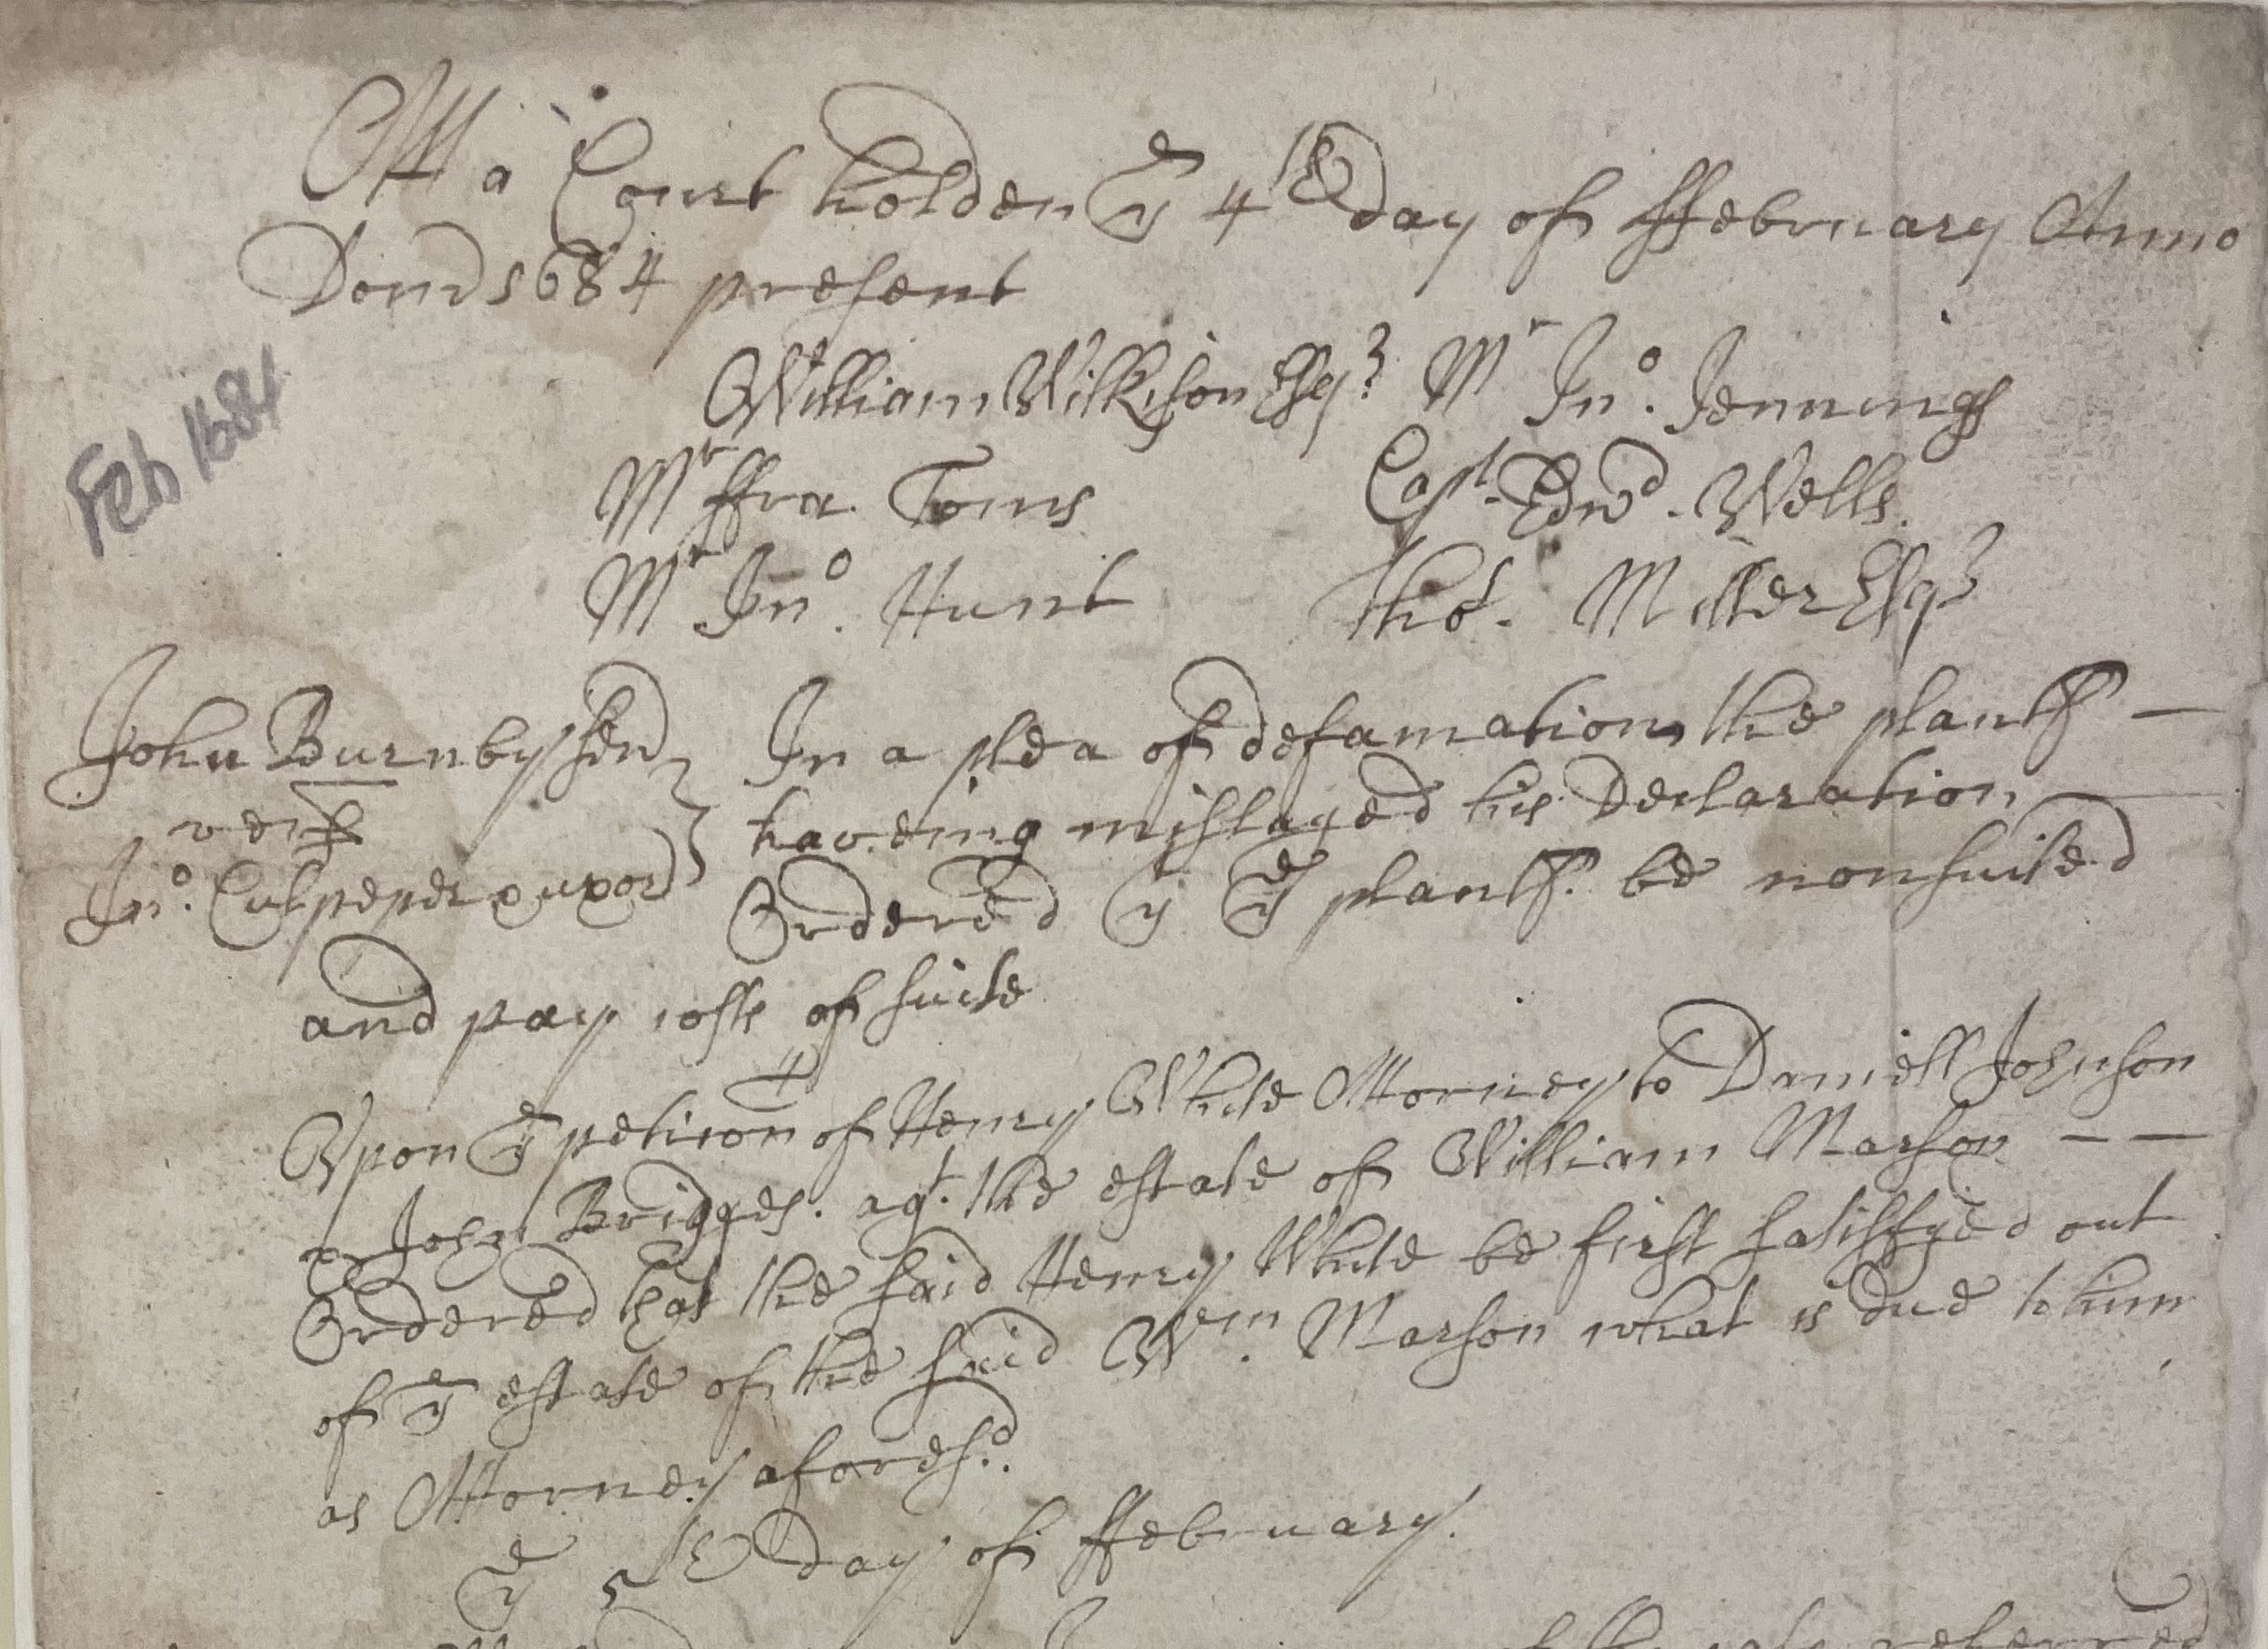 Att a Court holden ye 4th day of ffebruary Anno
Domi 1684 present
Feb 1684
William Wilkison Esqr Mr Jno. Jennings
Mr ffra. Toms Capt. Edwd. Wells.
Mr Jno. Hunt Tho. Miller Esqr
John Burnby senr In a plea of defamation, the plantf —
vers haveing mislayed his Declaration
Jno. Culpeper & uxor Ordered yt ye plantf. be nonsuited
and pay costs of suite
Upon ye petition of Henry White Attorney to Daniell Johnson
& John Bridges. agt. the estate of William Marson — —
Ordered that the said Henry White be first satisfyed out
of ye estate of the said Wm. Marson what is due to him
as Attorney aforesd.
ye 5th day of ffebruary.